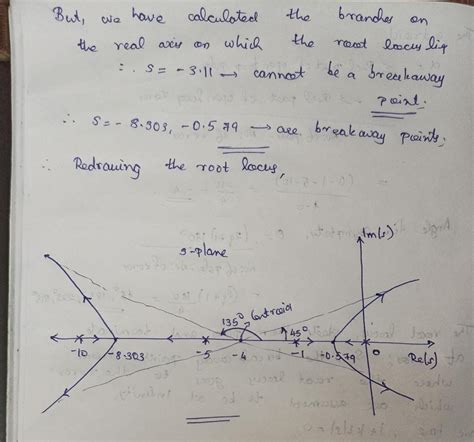 But, we have calculated the branches on
the real axis on which the root locus lie
∴ s = -3.11 → cannot be a breakaway
point.
∴ s = -8.303, -0.579 → are breakaway points.
∴ Redrawing the root locus,
Im(s)
s-plane
135° Centroid
45°
-10 -8.303 -5 -4 -1 -0.579 0 Re(s)